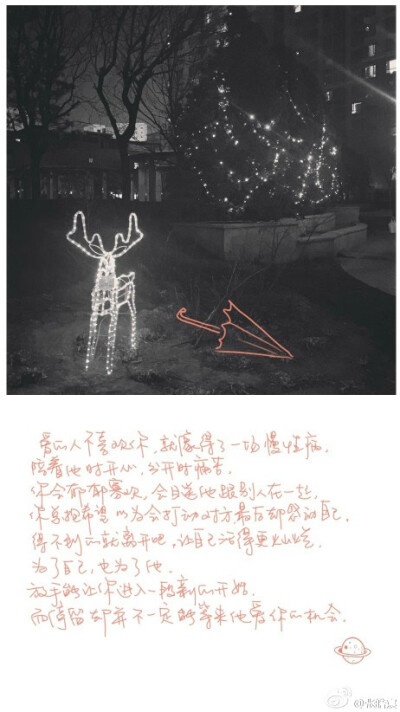 爱的人不喜欢你,就像得了一场慢性病.
陪着他时开心,分开时痛苦.
你会郁郁寡欢,会目送他跟别人在一起.
你总抱希望以为会打动对方最后却感动自己.
得不到的就离开吧,让自己活得更灿烂些.
为了自己,也为了他.
放手能让你进入一段新的开始.
而停留却并不一定能等来他爱你的机会.